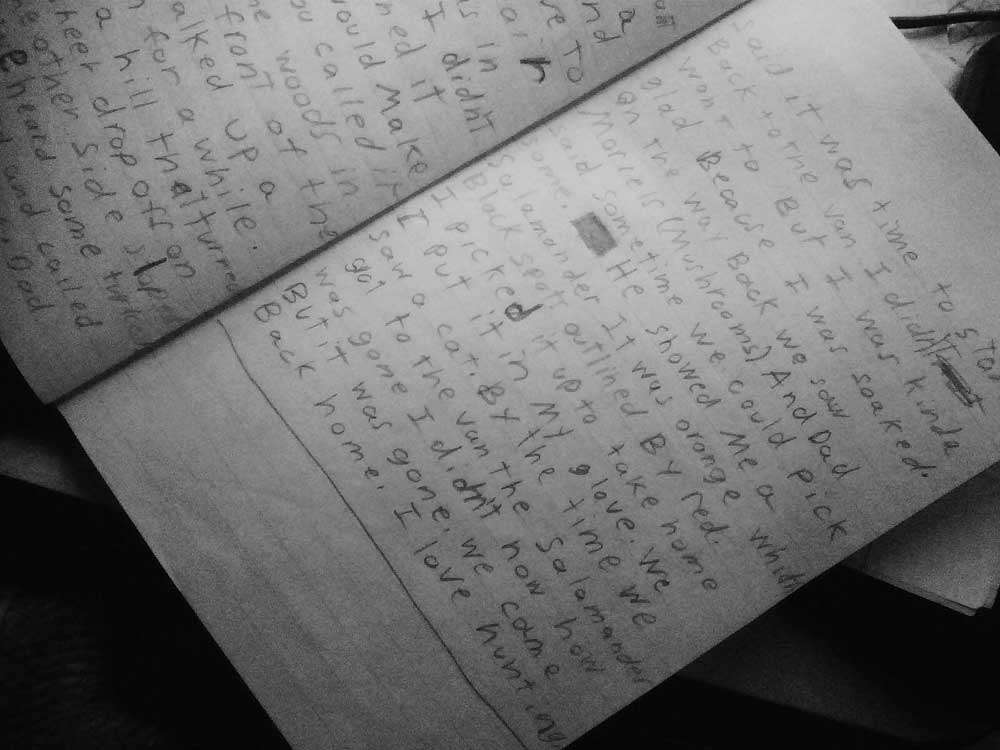 and a
ve To
I didnt
ned it
ould Make it
ou called
woods in
front of the
alked up a
for a while.
a hill that turned
heer drop off on
other side
heard some
and called
Dad
said it was time to star
Back to the van I didn't
want to But I was kinda
glad Because I was soaked.
On the way Back we saw
Morrels (Mushrooms) And Dad
said sometime we could pick
some. He showed Me a
Salamander It was orange whith
Black spots outlined By red.
I picked it up to take home
I put it in My glove. We
saw a cat. By the time we
got to the van the Salamander
was gone I didn't now how
But it was gone. we came
Back home. I love hunting